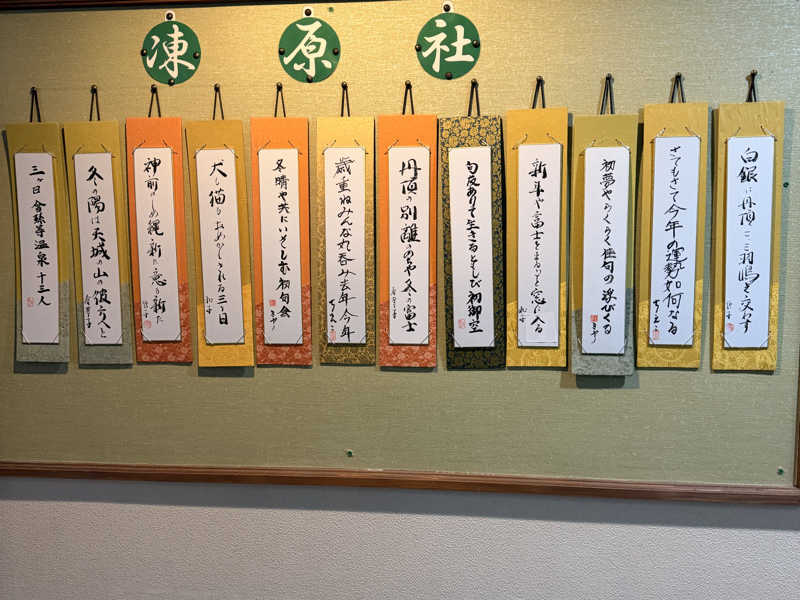 凍原社
白銀に丹頂二三羽鳴き交わす
さてもさて今年の運勢如何なる
初夢やらくらく佳句の浮びくる
新年や富士をまるごと窓に入る
句友ありて生きるともしび初御空
丹頂の別離ののちや冬の富士
歳重ねみんな丸呑み去年今年
冬晴や共にいそしむ初句会
犬も猫もおめかしされる三ヶ日
神前のしめ縄新た意も新た
冬の陽は天城の山の彼方へと
三ヶ日 十三人